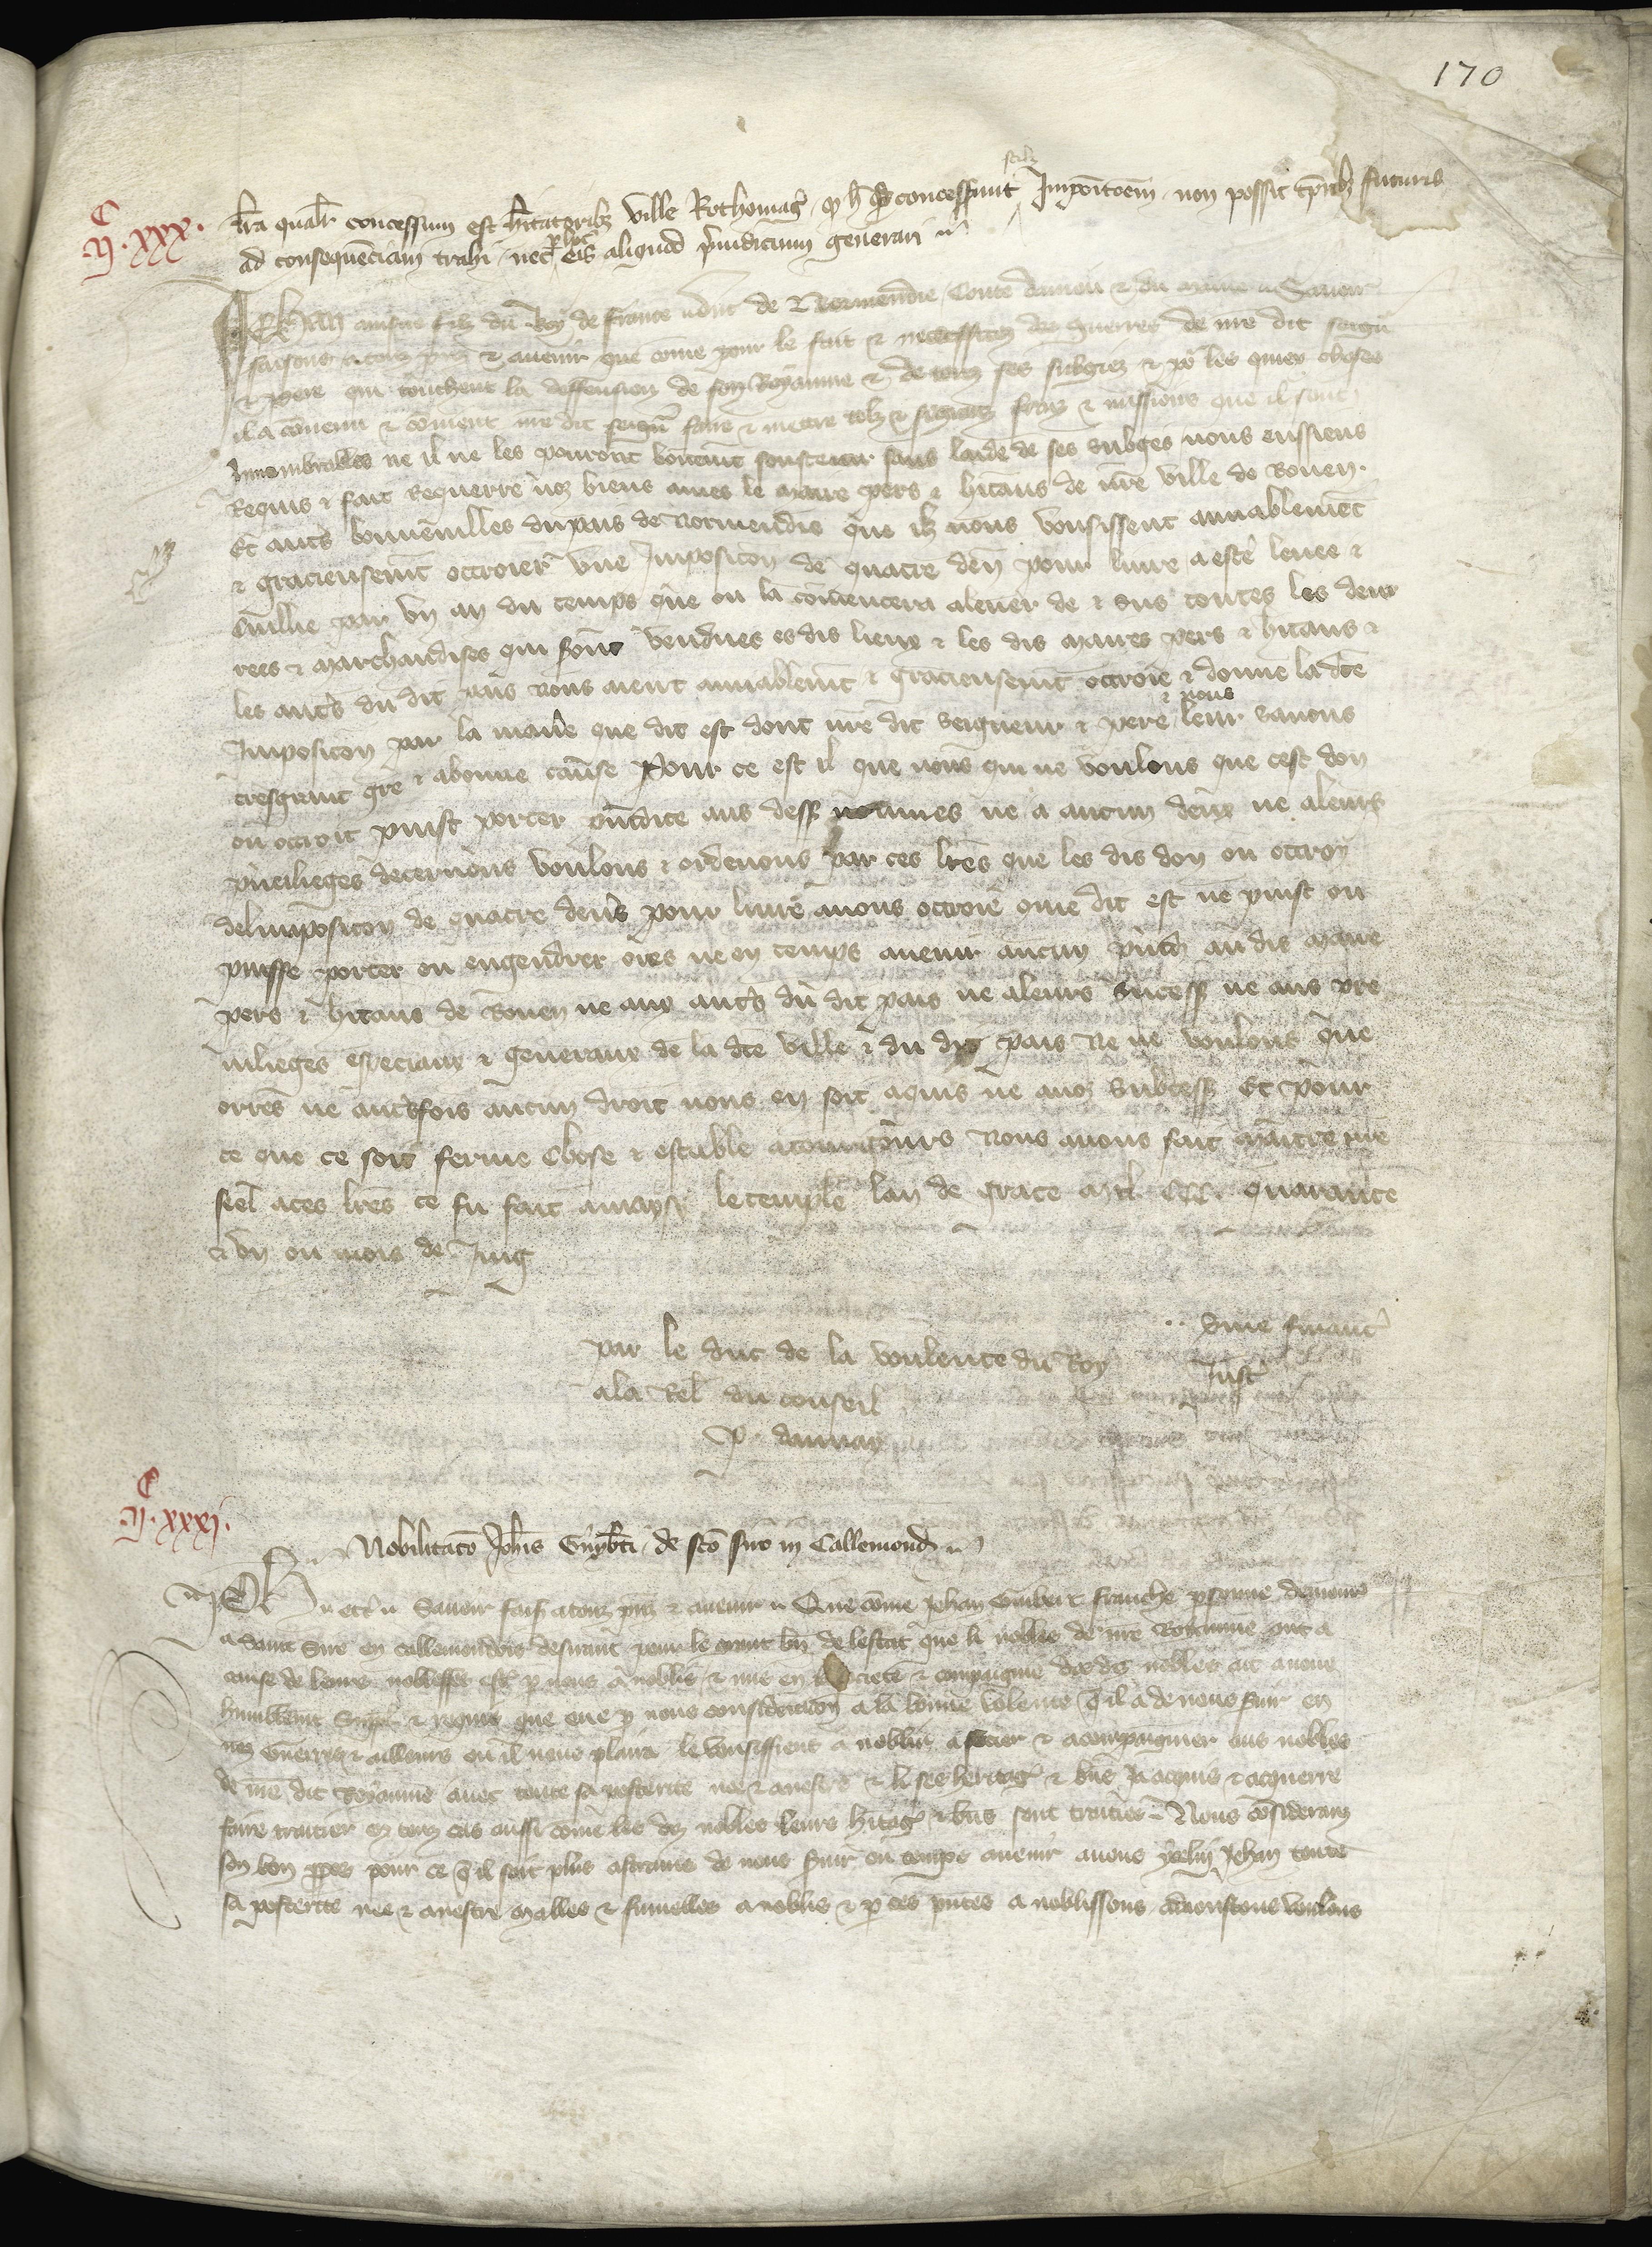 170
scilz
C
II·xxx·
lra qualr concessum est hitatoribz ville Rothomag q h concesserunt Imporitoem non possit tpribz futuris
ad consequenciam trahi nec p hoc eis aliquod piudicium generari
Jehan ainsne filz du Roy de france duc de Normendie Conte daniou & du maine Sauoir
faisons a touz psens & auenir que come pour le fait & necessitez des guerres de nre dit seign
& pere qui touchent la deffension de son Royaume & de touz ses subgiez & po les quiex choses
il a conuenu & conuient nre dit seign faire & mettre telz & si granz fraiz & missions que il sont
Innombrables ne il ne les pourroit bonnemt soustenir sans laide de ses subges nous eussiens
Requis & fait Requerre noz biens ames le maire pers & hitans de nre ville de Rouen
Et autres bonnes villes du pais de Normendie que ilz nous vousissent amiablement
& gracieusemt ottroier vne Imposicon de quatre den pour liure a estre leuee &
Cuillie par vn an du temps que on la comencera a leuer de & sus toutes les den
rees & marchandises qui seront vendues es dis lieux & les dis maires pers & hitans &
les autres du dit pais nous aient amiablemt & gracieusemt ottroie & donne la dte
Imposicon par la maniere que dit est dont nre dit Seigneur & pere & nous leur sauons
tresgrant gre & a bonne cause Pour ce est il que nous qui ne voulons que cest don
ou ottroit puist porter preiudice aus dess nommes ne a aucun deux ne a leurs
priuileges decernons voulons & ordenons par ces lres que les dis don ou ottroy
de limposicon de quatre deners pour liure a nous ottroie come dit est ne puist ou
puisse porter ou engendrer ores ne en temps auenir aucun preiud au dis maire
pers & hitans de Rouen ne aux autres du dit pais ne a leurs success ne aus pre
uileges especiaux & generaux de la dte ville & du dit pais Ne ne voulons que
orres ne autresfois aucun droit nous en soit aquis ne a noz success Et pour
ce que ce soit ferme chose & estable a tousiours Nous auons fait mettre nre
seel a ces lres ce fu fait a maysi le temple lan de grace mil CCC quarante
& vn ou mois de Juing
par le duc de la voulente du Roy
a la Rel du conseil
P. daunay
sine financ
Just
C
II·xxxj·
Nobilitaco Johis Guyberti de sco suo in Callemond
Ph etc Sauoir fais a touz psenz & auenir Que come Jehan Guibert franche psonne demeur
a Saint Sire en callemondois desirant pour le grant bn de lestat que li nobles de nre Royaume ont a
cause de leurs noblesses estre p nous anoblis & mis en societe & compaignie des ds nobles ait a nous
humblemt supplie & requis que eue p nous consideracion a la bonne volente quil a de nous suir en
noz guerres & ailleurs ou il nous plaira le vousissient anoblir associer & acompaignier aus nobles
de nre dit Royaume auec toute sa posterite nee & a nestre & li ses heritag & bns Ja acquis & acquerre
faire traitier en touz cas aussi come les dez nobles leurs hitag & bns sont traitiez Nous considerans
son bon ppos pour ce quil soit plus astrains de nous suir ou temps auenir auons ycelui Jehan toute
sa posterite nee & a nestre malles & fumelles anoblis & p ces pntes anoblissons adioustons voulons